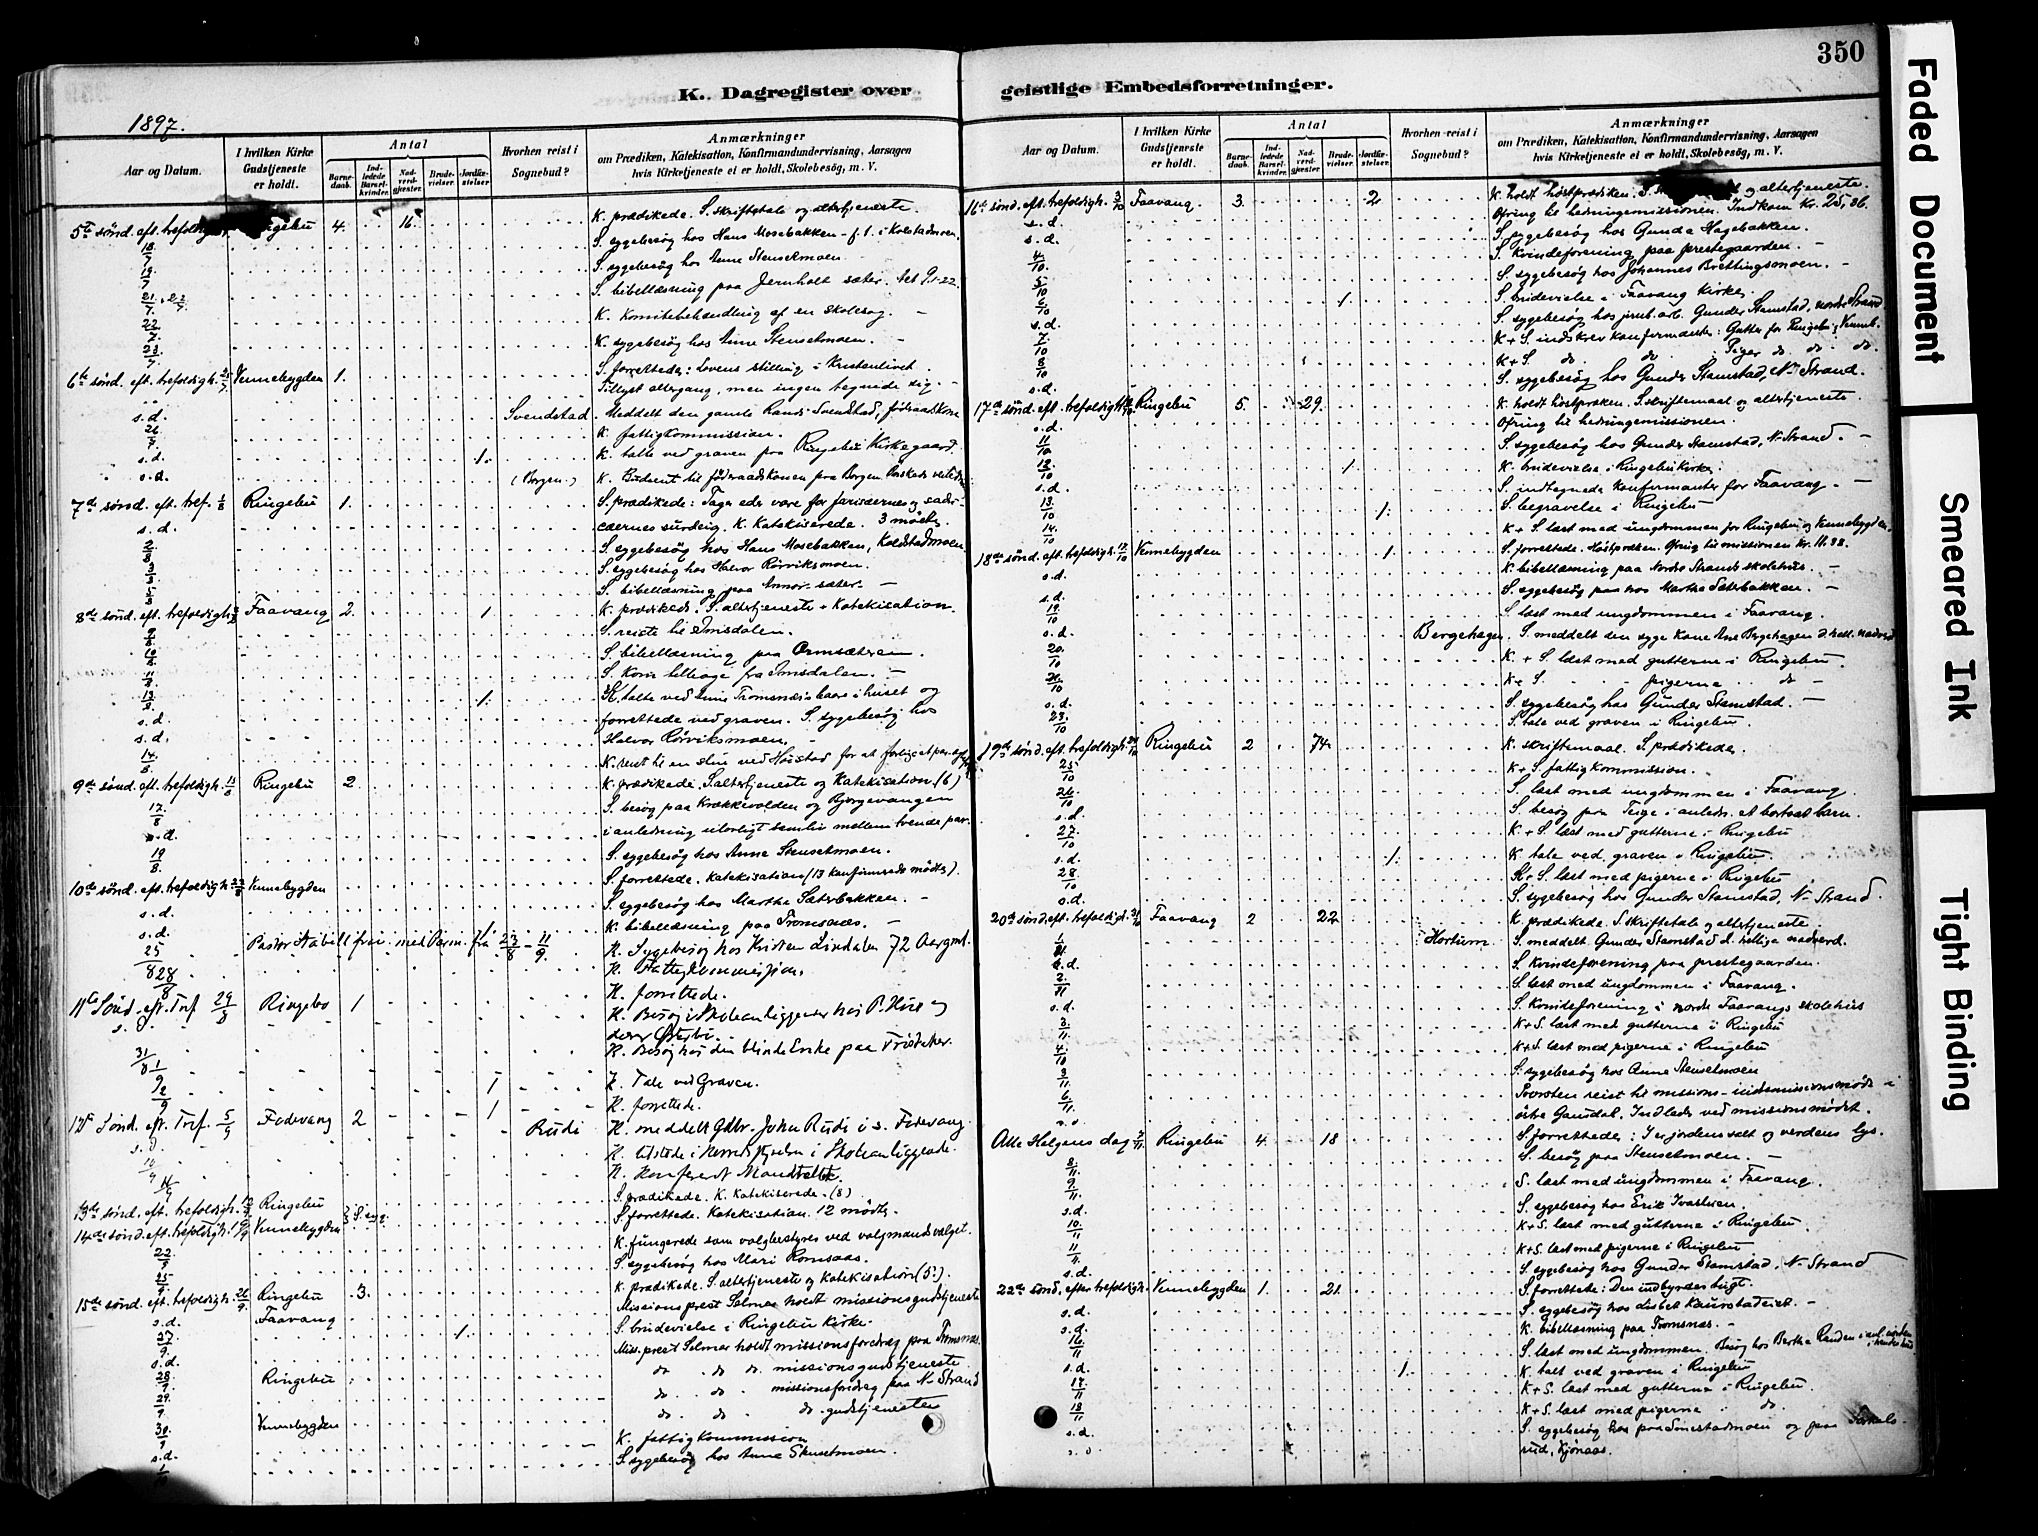 350
K. Dagregister over geistlige Embedsforretninger.
1897.
Aar og Datum.
I hvilken Kirke Gudstjeneste er holdt.
Antal
Barnedaab.
Indledede Barselkvinder.
Nadverdgjester.
Brudevielser.
Jordfæstelser.
Hvorhen reist i Sognebud?
Anmærkninger
om Prædiken, Katekisation, Konfirmandundervisning, Aarsagen
hvis Kirketjeneste ei er holdt, Skolebesøg, m. V.
5te sønd. eft. trefoldigh. 4. 16. K. prædikede. S. skriftetale og altertjeneste.
18/7 S. sygebesøg hos Hans Mosebakken
19/7 S. sygebesøg hos Anne Stensetmoen
21/7 S. bibellæsning paa Jernholt sæter.
22/7 K. Komitebehandling af en skolesag.
23/7 K. sygebesøg hos Anne Stensetmoen.
6te sønd. eft. trefoldigh. 25/7 Vennebygden 1. S. forrettede: Lovens stilling i Kristenlivet.
Tillyst altergang, men ingen tegnede sig.
s.d. Svendstad. Meddelt den gamle Randi Svendstad, føderaadskone
26/7 K. fattigkommission.
s.d. 1. K. talte ved graven paa Ringebu Kirkegaard.
s.d. (Borgen.) K. Budsent til føderaadskonen paa Borgen
7de sønd. eft. tref. 1/8 Ringebu 1. S. prædikede: Tager eder vare for farisæernes og sadu-
cæernes surdeig. K. Katekiserede. 3 mødte.
2/8 S. sygebesøg hos Hans Mosebakken, Kolstadmoen
3/8 S. sygebesøg hos Halvor Rørviksmoen.
5/8 S. bibellæsning paa sæter.
8de sønd. eft. trefoldigh. Faavang 2. 1. K. prædikede. S. altertjeneste + Katekisation.
9/8 S. reiste til Imsdalen.
10/8 S. bibellæsning paa Ormsæteren.
11/8 S. Kom tilbage fra Imsdalen.
13/8 1. K. talte ved Anne Tromsnæs's baare i huset og
s.d. forrettede ved graven. S. sygebesøg hos
s.d. Halvor Rørviksmoen.
14/8
9de sønd. eft. trefoldigh. 15/8 Ringebu 2. K. prædikede. S. altertjeneste og Katekisation. (6)
17/8 S. besøg paa Krækkevolden og Bjørgevangen
s.d. i anledning ulovligt samliv mellem tvende par.
19/8 S. sygebesøg hos Anne Stensetmoen.
10de sønd. eft. trefoldigh. 22/8 Vennebygden S. forrettede. Katekisation (13 Konfirmerede mødte).
s.d. S. sygebesøg hos Marthe Sæterbakken.
s.d. K. bibellæsning paa Tromsnæs.
Pastor Stabell fri med Perm. fra 23/8 - 11/9.
25/8 K. Sygebesøg hos Kristen Lindalen 72 Aar gml.
28/8 K. Fattigkommission.
11te Sønd. eft. Tref. 29/8 Ringebo 1 K. forrettede.
s.d. K. Besøg i
31/8 K. Besøg hos den blinde Enke paa
1/9 1 K. Tale ved Graven.
2/9 1 K. forrettede.
12te Sønd. eft. Tref. 5/9 Fodevang 2 Rudi K. meddelt Gdbr. Johan Rudi i s. Fodevang
s.d. K. tilstede i Herredsstyrelsen i
10/9 K. konfererte
13de sønd. eft. trefoldigh. 12/9 Ringebu S. prædikede. K. Katekiserede. (8)
14de sønd. eft. trefoldigh. 19/9 Vennebygden S. forrettede. Katekisation. 12 mødte.
22/9 K. fungerede som valgbestyrer ved valgmandsvalget.
25/9 S. sygebesøg hos Mari Romsaas.
15de sønd. eft. trefoldigh. 26/9 Ringebu 3. K. prædikede. S. altertjeneste og Katekisation (5).
s.d. Faavang Missionsprest Selmer holdt missionsgudstjeneste
27/9 1. S. brudevielse i Ringebu Kirke.
s.d. Miss.prest Selmer holdt missionsforedrag paa Tromsnæs.
28/9 Ringebu do do. do. missionsgudstjeneste
29/9 do. do. missionsforedrag paa N. Strand
30/9 Vennebygden do. do. do. gudstjenesten
s.d. K. fattigkommission
1/ S. sygebesøg hos Anne Stensetmoen.
16de sønd. eft. trefoldigh. 3/10 Faavang. 3. 2. K. holdt høstprædiken. og altertjeneste.
s.d. Ofring til hedningemissionen. Indkom Kr. 25,36.
s.d. S. sygebesøg hos Gunda Hagebakken.
4/10. S. Kvindeforening paa prestegaarden.
5/10 S. sygebesøg hos Johannes Brettingsmoen.
6/10 1. S. brudevielse i Faavang Kirke.
s.d. S. sygebesøg hos Gunder Stamstad, nordre Strand
7/10 K + S. indskrev konfirmanter: Gutter for Ringebu & Venneb.
8/10 K + S do do. Piger do do. do.
s.d. S. sygebesøg hos Gunder Stamstad, N. Strand.
17de sønd. eft. trefoldigh. Ringebu 5. 29. K. holdt høstpræken. S. skriftemaal og altertjeneste
s.d. Ofring til hedningemissionen.
11/10 S. sygebesøg hos Gunder Stamstad, N. Strand.
12/10 1. K. brudevielse i Ringebu Kirke.
s.d. S. indtegnede konfirmanter for Faavang.
13/10 1. S. begravelse i Ringebu
14/10 K + S. læst med ungdommen for Ringebu og Vennebygden.
18de sønd. eft. trefoldigh. 17/10 Vennebygden 1. S. forrettede. Høstpræken. Ofring til missionen Kr. 11.88.
s.d. K. bibellæsning paa Nordre Strands skolehus.
s.d. S. sygebesøg hos Marthe Sæterbakken.
19/10 S. læst med ungdommen i Faavang.
s.d. Bergehagen. S. meddelt den syge Kone Ane Bergehagen d. hell. nadverd
20/10 K. + S. læst med gutterne i Ringebu.
21/10 K + S. pigerne do
s.d. S. sygebesøg hos Gunder Stamstad.
23/10 S. tale ved graven i Ringebu
19de sønd. eft. trefoldigh. 24/10 Ringebu 2 74. K. skriftemaal. S. prædikede.
25/10 K + S. fattigkommission.
26/10 S. læst med ungdommen i Faavang.
s.d. S. besøg paa Teige i anledn. et bortsat barn.
27/10 K + S. læst med gutterne i Ringebu
s.d. 1. K tale ved graven i Ringebu.
28/10 K + S. læst med pigerne i Ringebu
s.d. S. sygebesøg hos Gunder Stamstad, N. Strand.
20de sønd. eft. trefoldigh. 31/10 Faavang 2 22. K. prædikede. S. skriftetale og altertjeneste
1/11 Hortum. S. meddelt Gunder Stamstad d. hellige nadverd.
s.d. S. Kvindeforening paa prestegaarden.
2/11 S. læst med ungdommen i Faavang.
s.d. S. Kvindeforening i nordre Faavangs skolehus
3/11. K + S. læst med gutterne i Ringebu
4/10 K + S. læst med pigerne i Ringebu
5/11. S. sygebesøg hos Anne Stensetmoen
6/11. Provsten reist til missions- indremissionsmøde i
østre Gausdal. Indleder ved missionsmødet.
Alle Helgens dag 7/11. Ringebu 4. 18 S. forrettede: I er jordens salt og verdens lys.
8/11. S. besøg paa Stensetmoen.
9/11. S. læst med ungdommen i Faavang.
s.d. S. sygebesøg hos Erik Ivarsveen
10/11 K + S. læst med gutterne i Ringebu.
11/11 K + S. læst med pigerne i Ringebu
s.d. S. sygebesøg hos Gunder Stamstad, N. Strand
22de sønd. efter trefoldigh. Vennebygden 1. 21. S. forrettede: Den ubarmhjertige
s.d. S. sygebesøg hos Lisbet Kaurstadeiet.
s.d. K. bibellæsning paa Tromsnæs.
16/11 S. læst med ungdommen. Besøg hos Berthe Randen
s.d. 1. K. talt ved graven i Ringebu
17/11 K + S. læst med gutterne i Ringebu.
18/11 K + S. læst med pigerne i do
s.d. S. sygebesøg hos paa og paa
rud, Kjønaas.
Faded Document
Smeared Ink
Tight Binding